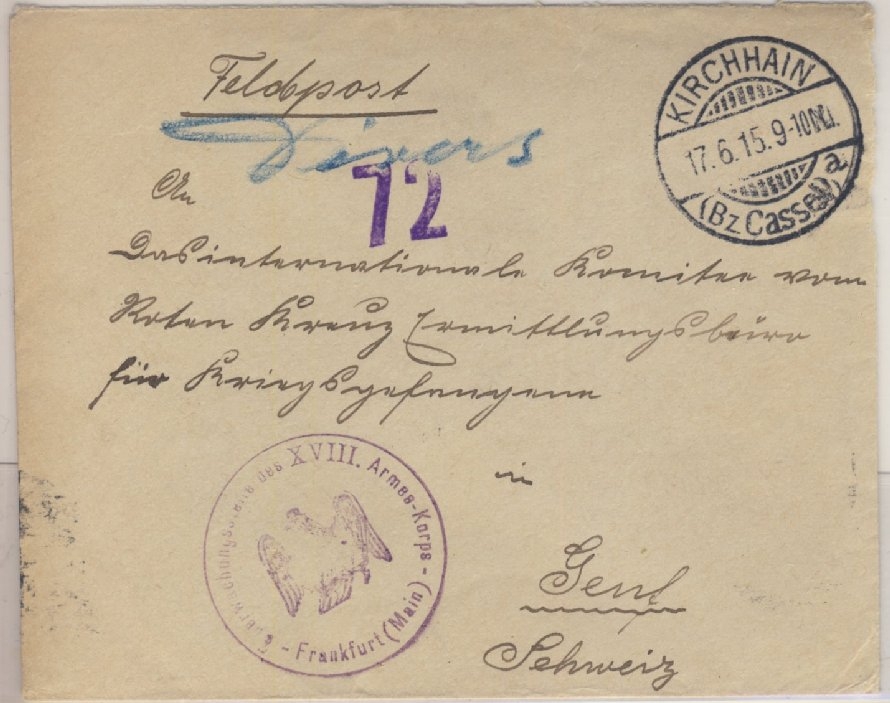 Feldpost
KIRCHHAIN
17.6.15. 9-10N.
(Bz Cassel) a
Divers
72
An
Das internationale Komitee vom
Roten Kreuz Ermittlungsbüro
für Kriegsgefangene
in
Genf
Schweiz
Überwachungsstelle des XVIII. Armee-Korps - Frankfurt (Main) -